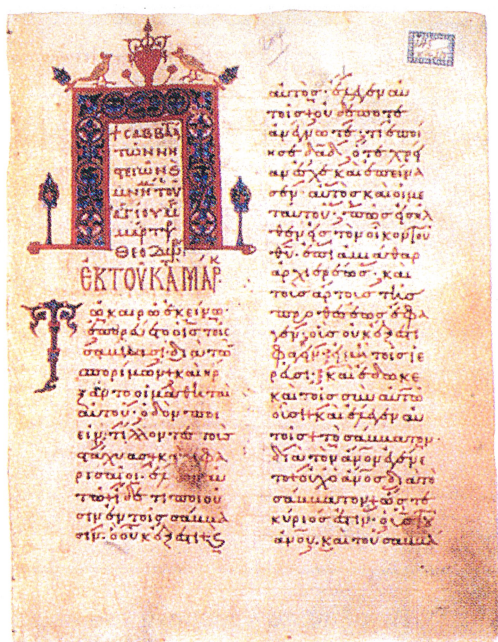 + CΑΒΒΑ
ΤΩΝ ΝΗ
CΤΕΙΩΝ S
ΜΝΗ ΤΟΥ
ΑΓΙΟΥ Μ
ΜΑΡΤΥΡ
ΘΕΟΔΩΡ
ΕΚ ΤΟΥ ΚΑΤΑ ΜΑΡΚ
Τῶ καιρῶ ἐκείνω·
ἐπορεύετο ὁ ις τοῖς
σάββασι· διὰ τῶν
σπορίμων· καὶ ἤρ
ξαντο οἱ μαθηταὶ
αὐτοῦ· ὁδὸν ποι
εῖν· τίλλοντες τοὺς
στάχυας· κ οἱ φα
ρισαῖοι· ἔλεγον αὐ
τῶ· ἴδε τί ποιοῦ
σιν ἐν τοῖς σάββα
σιν· ὃ οὐκ ἔξεστι· ϗ
αὐτὸς· ἔλεγεν αὐ
τοῖς· οὐδέποτε
ἀνέγνωτε· τί ἐποί
ησε δαδ· ὅτε χρεί
αν ἔσχε καὶ ἐπείνα
σεν· αὐτὸς καὶ οἱ με
τ' αὐτοῦ· πῶς εἰσῆλ
θεν εἰς τὸν οἶκον τοῦ
θυ· ἐπὶ ἀβιάθαρ
ἀρχιερέως· καὶ
τοὺς ἄρτους τῆς
προθέσεως ἔφα
γεν· οὓς οὐκ ἔξεστι
φαγεῖν· εἰ μὴ τοῖς ἱε
ρεῦσι· καὶ ἔδωκε
καὶ τοῖς σὺν αὐτῶ
οὖσι· καὶ ἔλεγεν αὐ
τοῖς· τὸ σάββατον·
διὰ τὸν ανον ἐγένε
το· οὐχ ὁ ανος διὰ τὸ
σάββατον· ὥστε
κύριός ἐστιν· ὁ υς τοῦ
ανου· καὶ τοῦ σαββά